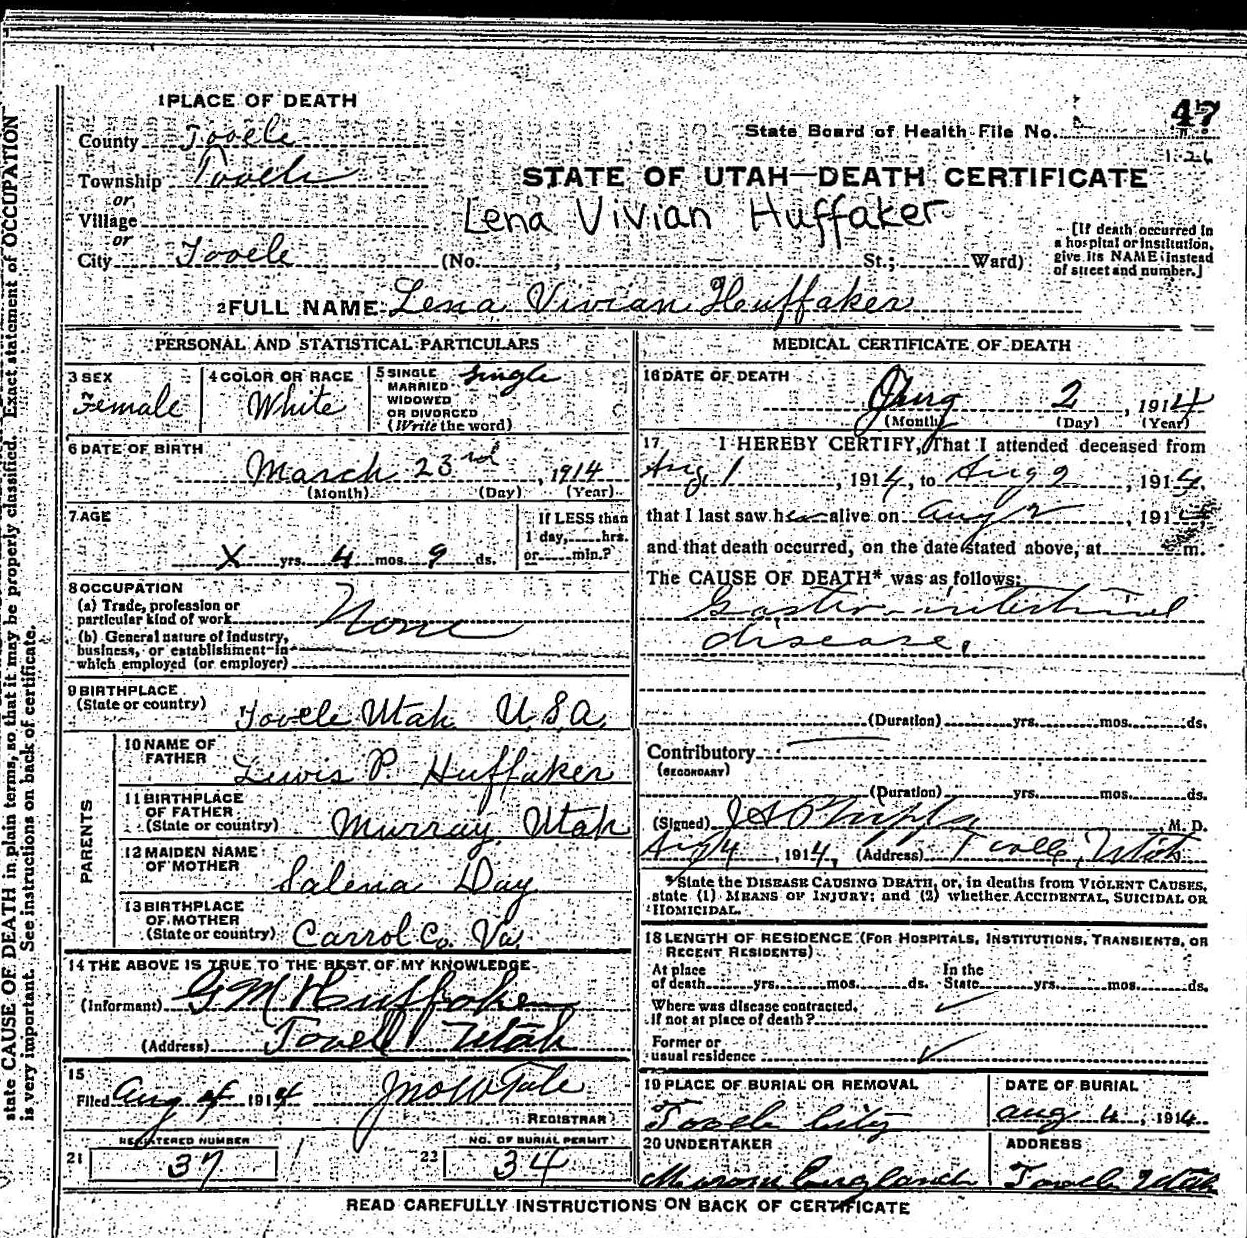 state CAUSE OF DEATH in plain terms, so that it may be properly classified. Exact statement of OCCUPATION
is very important. See instructions on back of certificate.
1 PLACE OF DEATH
47
County Tooele
State Board of Health File No.
Township Tooele
STATE OF UTAH—DEATH CERTIFICATE
or
Village
Lena Vivian Huffaker
or
City Tooele (No. , St.; Ward)
[If death occurred in
a hospital or institution,
give its NAME instead
of street and number.]
2 FULL NAME Lena Vivian Huffaker
PERSONAL AND STATISTICAL PARTICULARS
3 SEX
Female
4 COLOR OR RACE
White
5 SINGLE
MARRIED
WIDOWED
OR DIVORCED
(Write the word)
Single
6 DATE OF BIRTH
March 23rd, 1914
(Month) (Day) (Year)
7 AGE
X yrs. 4 mos. 9 ds.
If LESS than
1 day, hrs.
or min.?
8 OCCUPATION
(a) Trade, profession or
particular kind of work None
(b) General nature of industry,
business, or establishment in
which employed (or employer)
9 BIRTHPLACE
(State or country)
Tooele Utah U.S.A.
PARENTS
10 NAME OF
FATHER
Lewis P Huffaker
11 BIRTHPLACE
OF FATHER
(State or country)
Murray, Utah
12 MAIDEN NAME
OF MOTHER
Salena Day
13 BIRTHPLACE
OF MOTHER
(State or country)
Carrol Co. Va.
14 THE ABOVE IS TRUE TO THE BEST OF MY KNOWLEDGE
(Informant) G M Huffaker
(Address) Tooele Utah
15
Filed Aug 4 1914 Jno W Tate
REGISTRAR
REGISTERED NUMBER
21 37
NO. OF BURIAL PERMIT
22 34
MEDICAL CERTIFICATE OF DEATH
16 DATE OF DEATH
Aug 2, 1914
(Month) (Day) (Year)
17 I HEREBY CERTIFY, That I attended deceased from
Aug 1, 1914, to Aug 2, 1914,
that I last saw her alive on Aug 2, 191
and that death occurred, on the date stated above, at m.
The CAUSE OF DEATH* was as follows:
Gastro-intestinal
disease.
(Duration) yrs. mos. ds.
Contributory
(SECONDARY)
(Duration) yrs. mos. ds.
(Signed) M. D.
Aug 4, 1914, (Address) Tooele, Utah
*State the DISEASE CAUSING DEATH, or, in deaths from VIOLENT CAUSES,
state (1) MEANS OF INJURY; and (2) whether ACCIDENTAL, SUICIDAL OR
HOMICIDAL.
18 LENGTH OF RESIDENCE (FOR HOSPITALS, INSTITUTIONS, TRANSIENTS, OR
RECENT RESIDENTS)
At place
of death yrs. mos. ds.
In the
State yrs. mos. ds.
Where was disease contracted,
If not at place of death?
Former or
usual residence
19 PLACE OF BURIAL OR REMOVAL
Tooele City
DATE OF BURIAL
Aug 4, 1914
20 UNDERTAKER
ADDRESS
Tooele Utah
READ CAREFULLY INSTRUCTIONS ON BACK OF CERTIFICATE